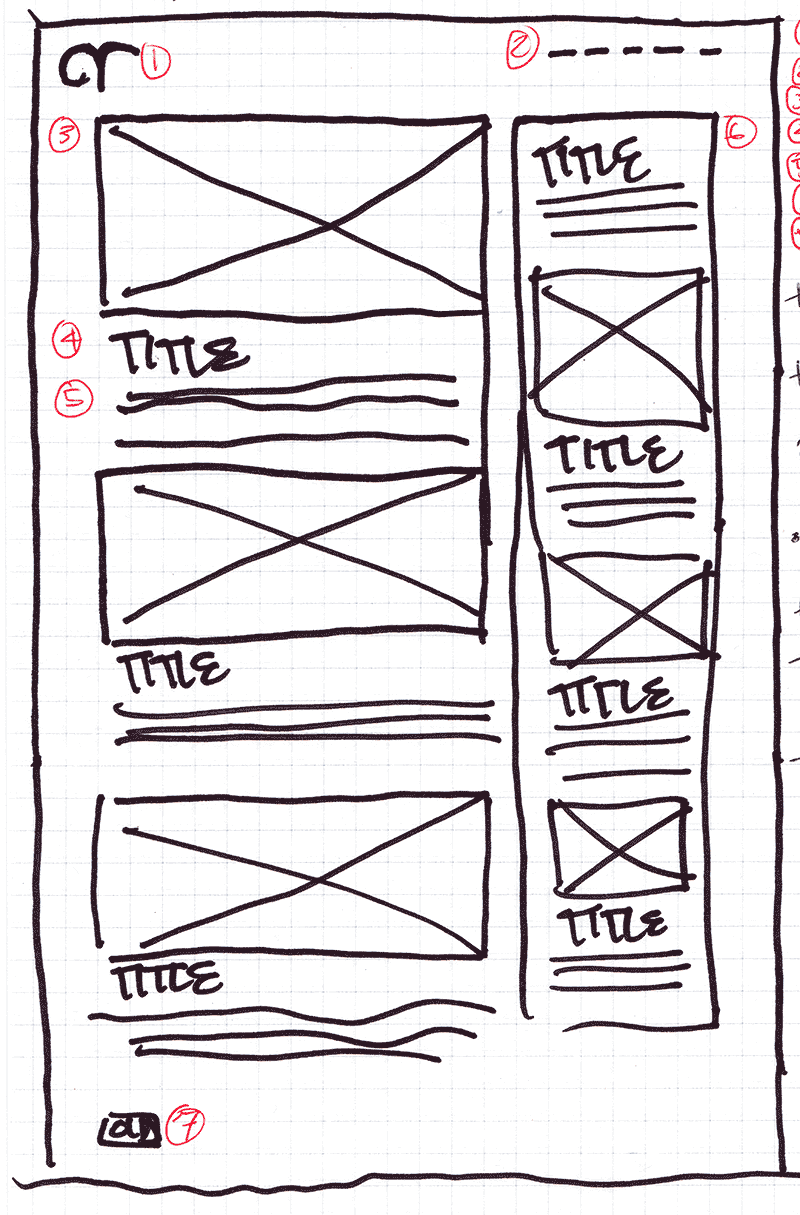 1
2
3
6
TITLE
4
TITLE
5
TITLE
TITLE
TITLE
TITLE
TITLE
7